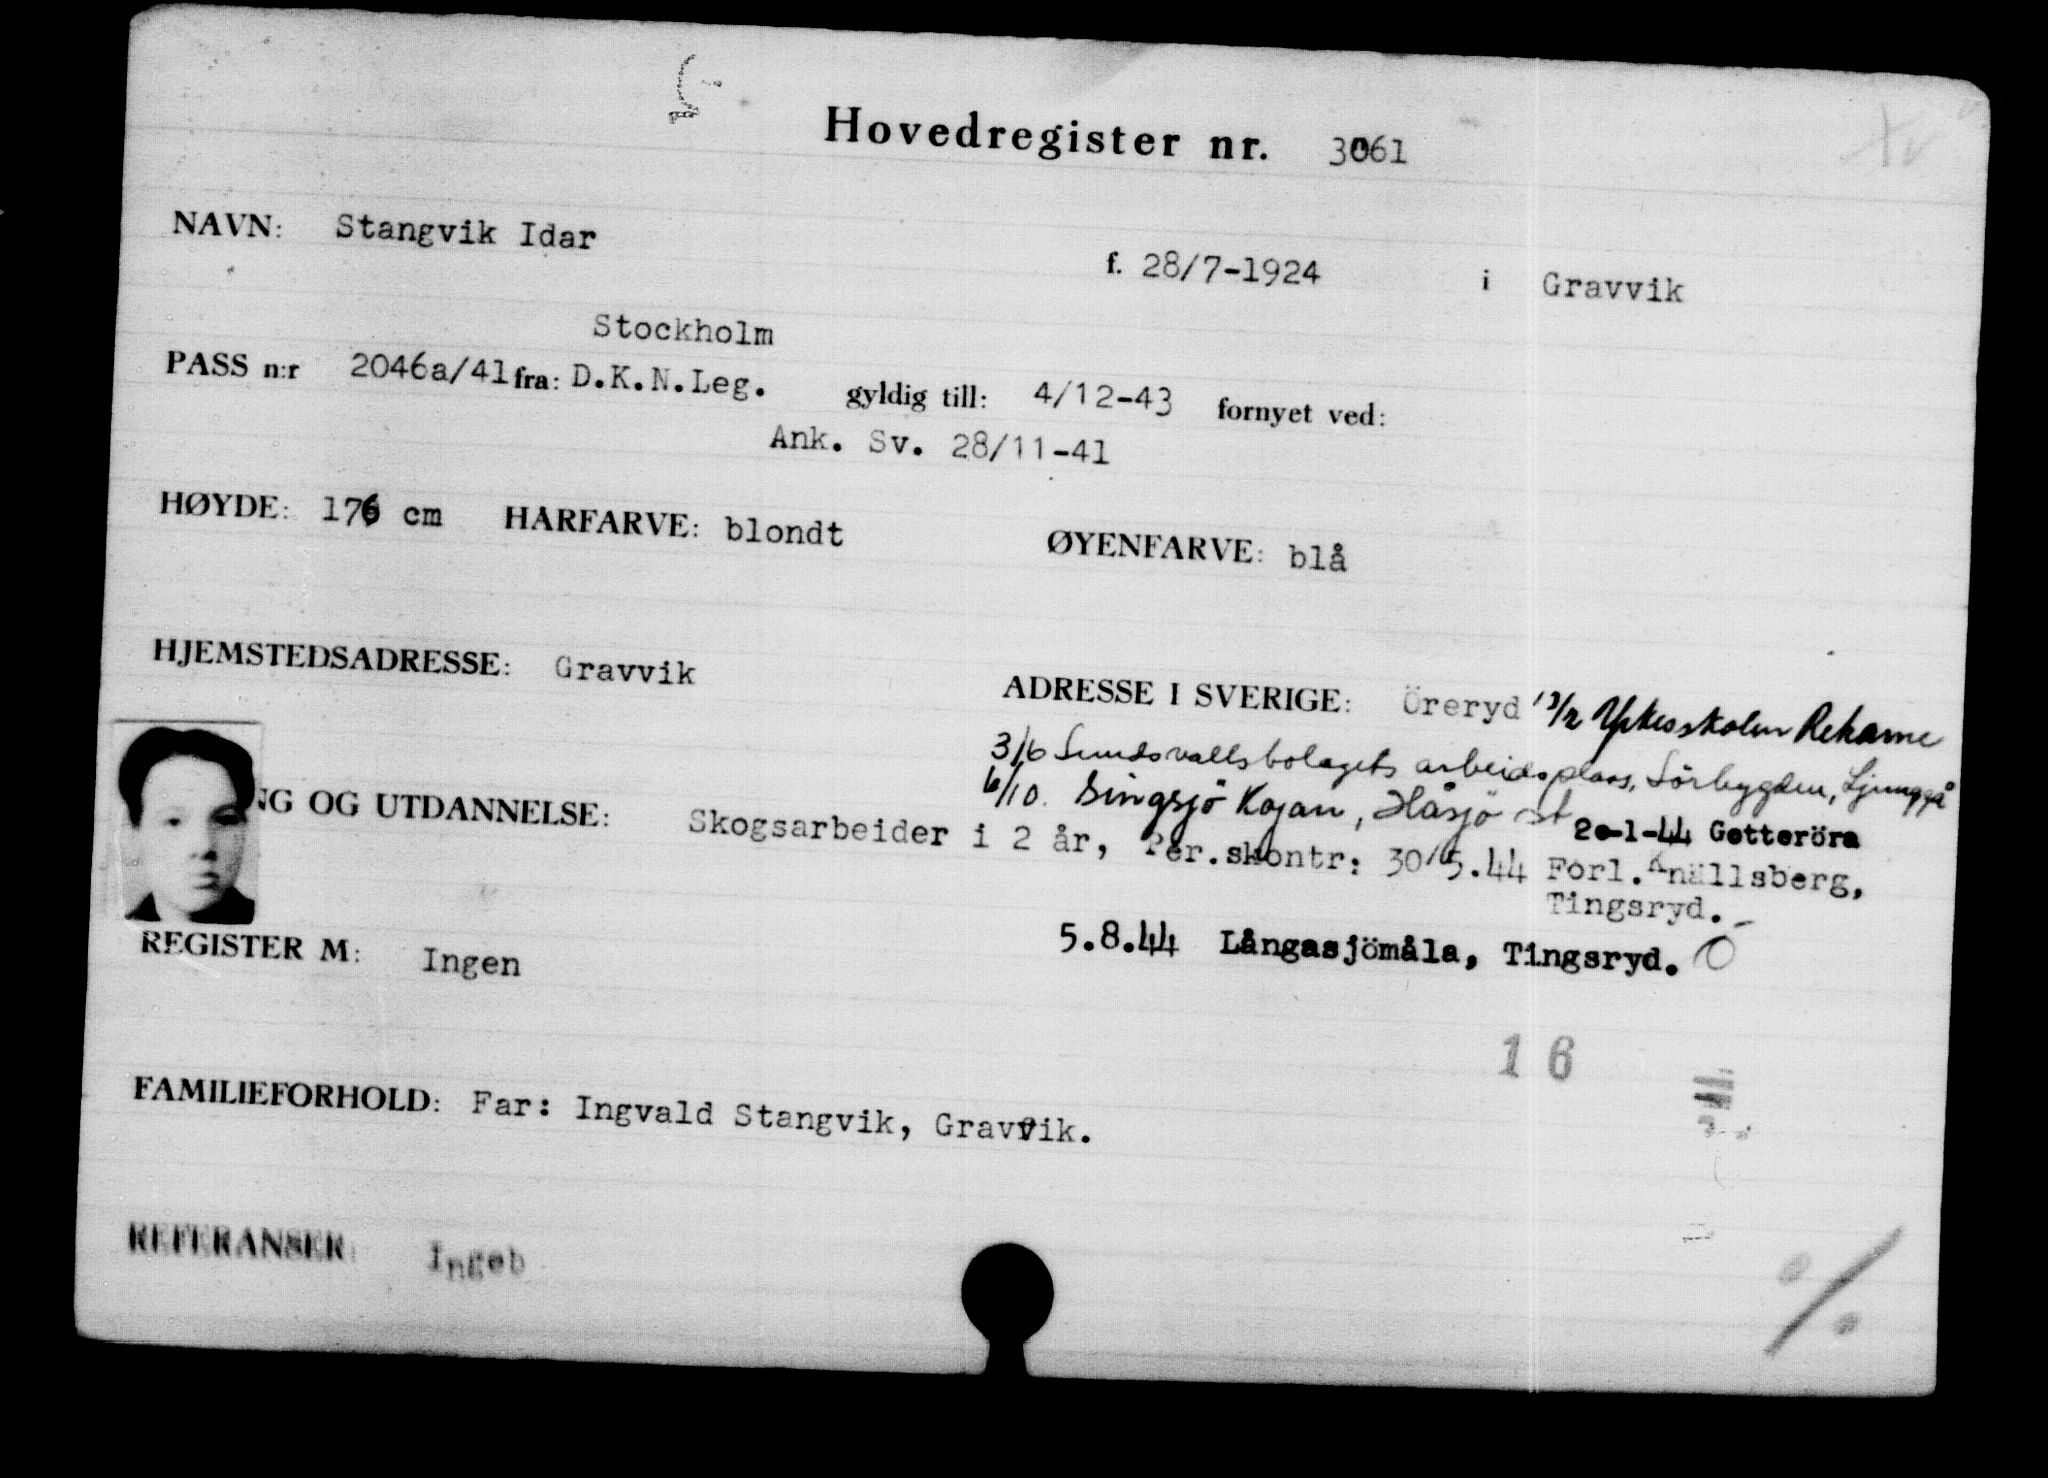 Hovedregister nr. 3061
NAVN: Stangvik Idar
f. 28/7-1924 i Gravvik
Stockholm
PASS n:r 2046a/41 fra: D.K.N.Leg. gyldig till: 4/12-43 fornyet ved:
Ank. Sv. 28/11-41
HØYDE: 176 cm HARFARVE: blondt ØYENFARVE: blå
HJEMSTEDSADRESSE: Gravvik
ADRESSE I SVERIGE: Öreryd 13/2 Yrkesskolen Rekarne
3/6 Sundsvallsbolagets arbeidsplass, Sörbygden, Ljungå
6/10. Singsjö Kojan, Håsjö st
20-1-44 Getteröra
NG OG UTDANNELSE: Skogsarbeider i 2 år, Per.skontr: 30/5.44 Forl. Knällsberg,
Tingsryd.-
REGISTER M: Ingen
5.8.44 Långasjömåla, Tingsryd.
16
FAMILIEFORHOLD: Far: Ingvald Stangvik, Gravvik.
REFERANSER: Ingeb